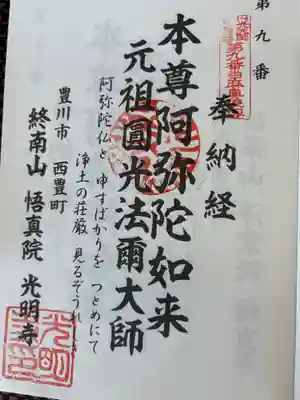 第九番
奉納経
本尊阿弥陀如来
元祖圓光法爾大師
阿弥陀仏と 申すばかりを つとめにて
浄土の荘厳 見るぞうれしき
豊川市 西豊町
終南山 悟真院 光明寺